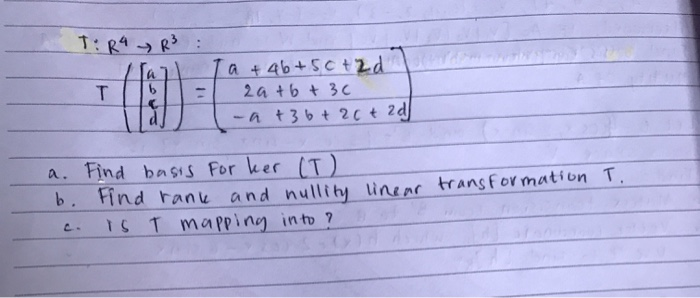 T: R⁴ → R³ :
T ([a b c d]) = [a + 4b + 5c + 2d
2a + b + 3c
-a + 3b + 2c + 2d]
a. Find basis For ker (T)
b. Find rank and nullity linear transformation T.
c. is T mapping into?